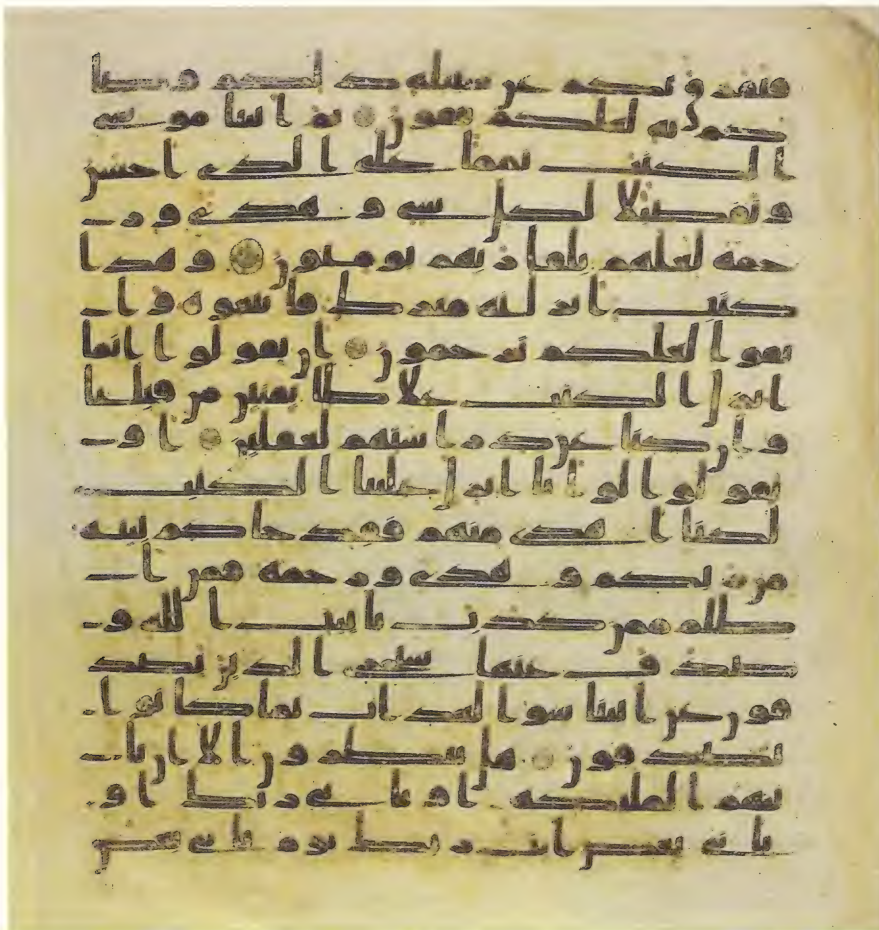 فتفرق بكم عن سبيله ذلكم وصا
كم به لعلكم تتقون ثم اتينا موسى
الكتب تماما على الذي احسن
وتفصيلا لكل شي وهدى ور
حمة لعلهم بلقا ربهم يومنون وهذا
كتب انزلنه مبرك فاتبعوه وا
تقوا لعلكم ترحمون ان تقولوا انما
انزل الكتب علا طايفتين من قبلنا
وان كنا عن دراستهم لغفلين او
تقولوا لو انا انزل علينا الكتب
لكنا اهدى منهم فقد جاكم بينه
من ربكم وهدى ورحمة فمن ا
ظلم ممن كذب بايت الله و
صدف عنها سنجزي الذين يصد
فون عن ايتنا سو العذاب بما كانوا
يصدفون هل ينظرون الا ان تا
تيهم الملئكة او ياتي ربك او
ياتي بعض ايت ربك يوم ياتي بعض